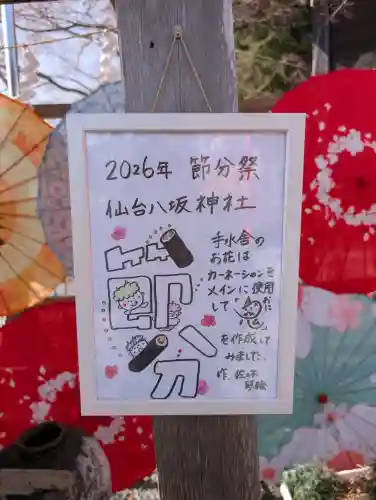 2026年 節分祭
仙台八坂神社
節分
手水舎の
お花は
カーネーションを
メインに使用
して
を作成して
みました。